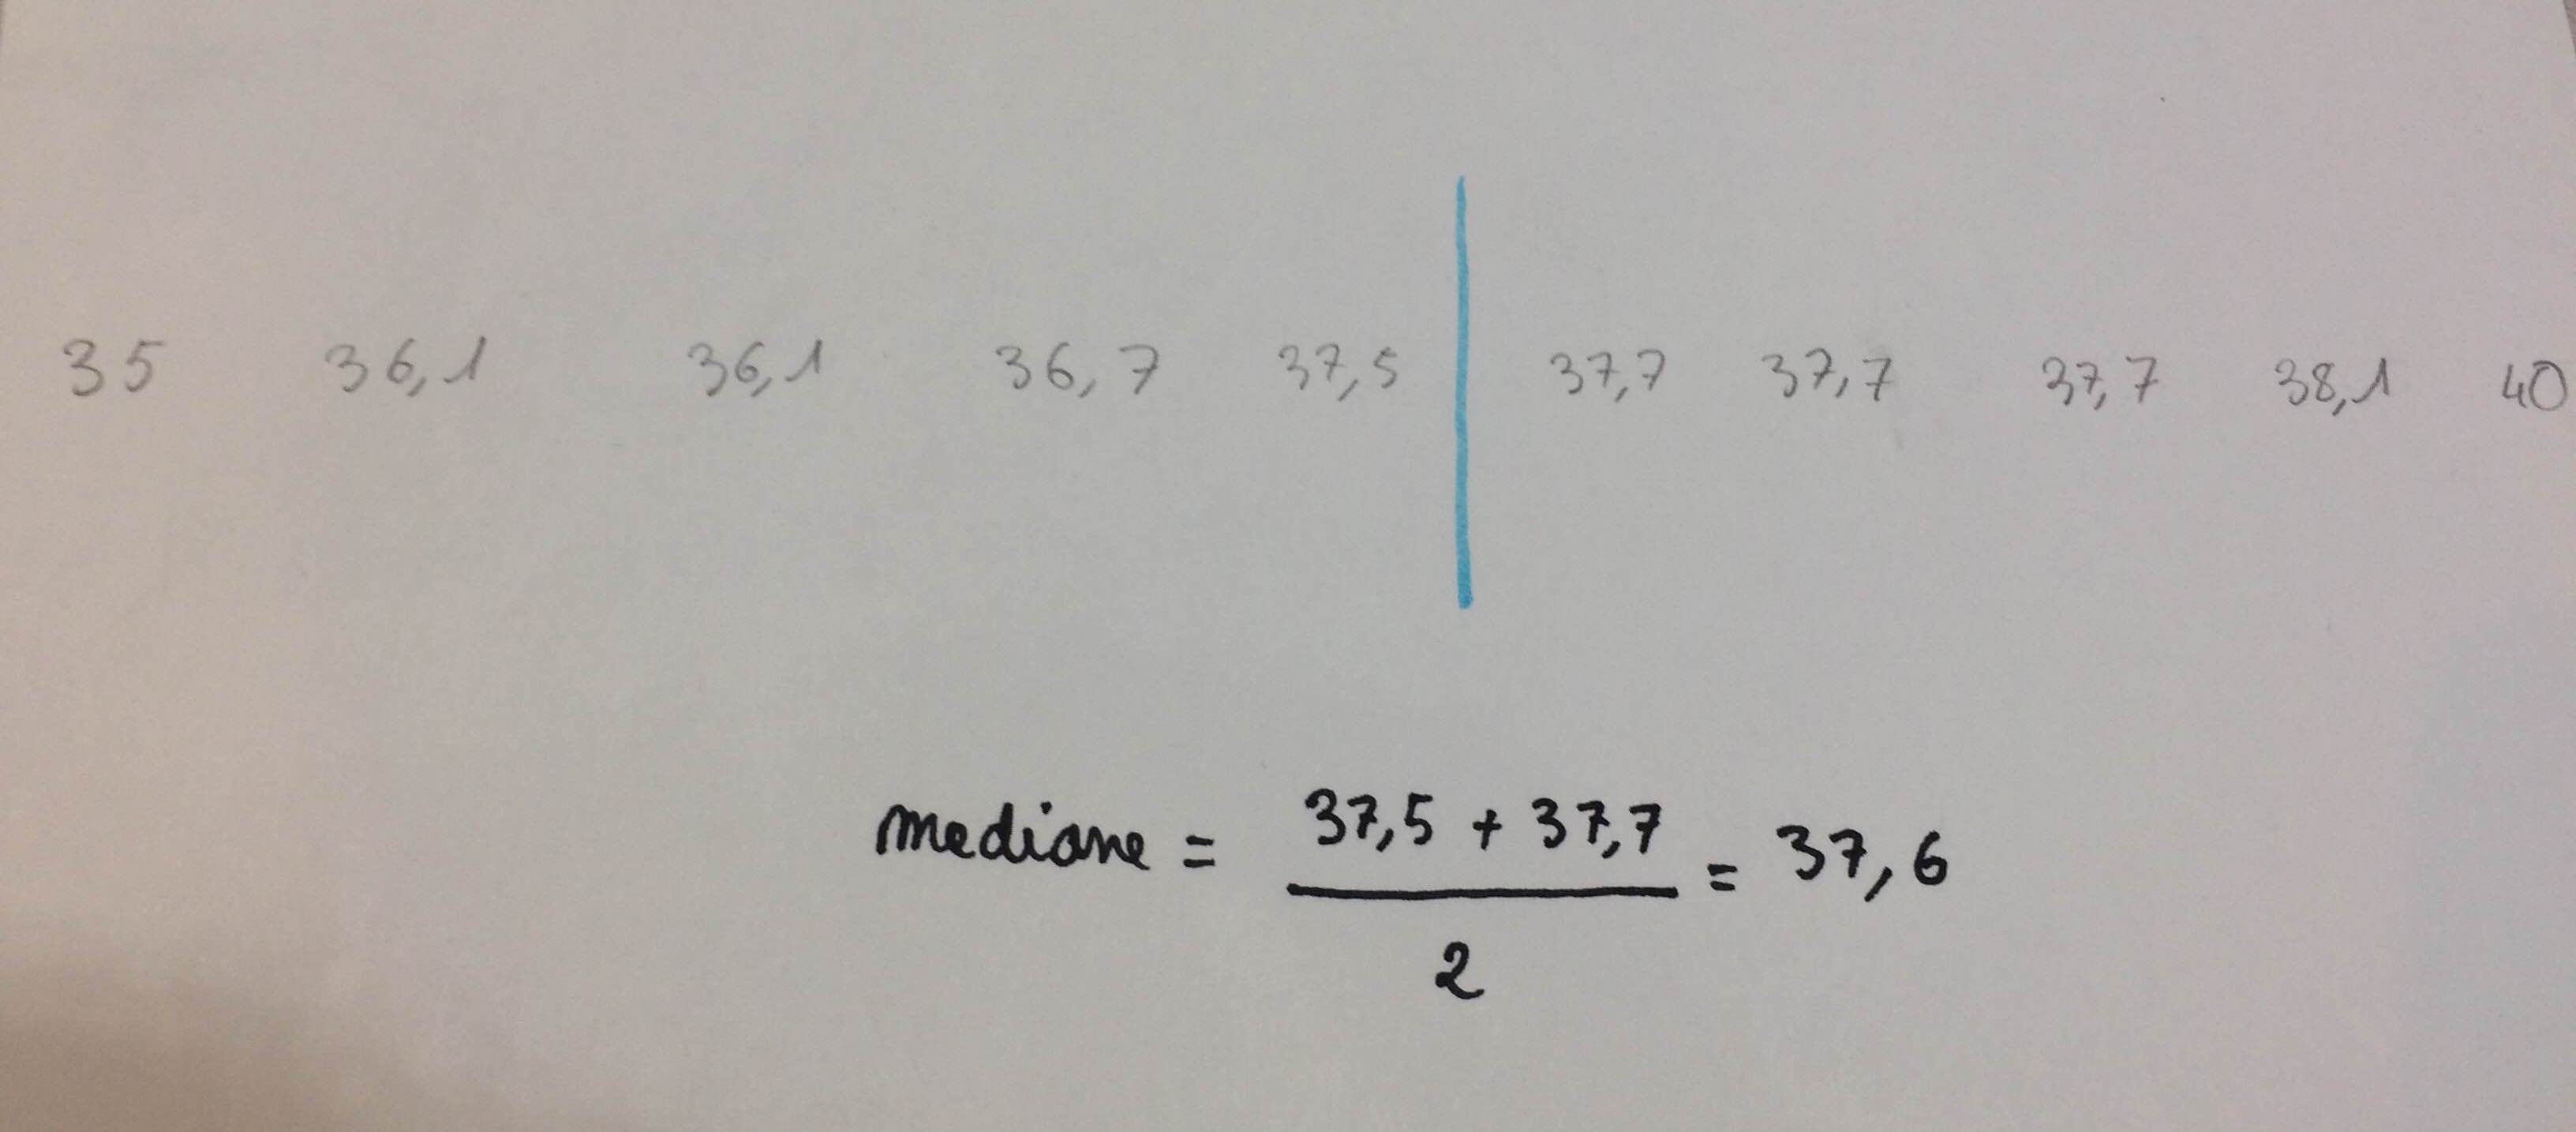 35 36,1 36,1 36,7 37,5 37,7 37,7 37,7 38,1 40
mediane = 37,5 + 37,7 = 37,6
2